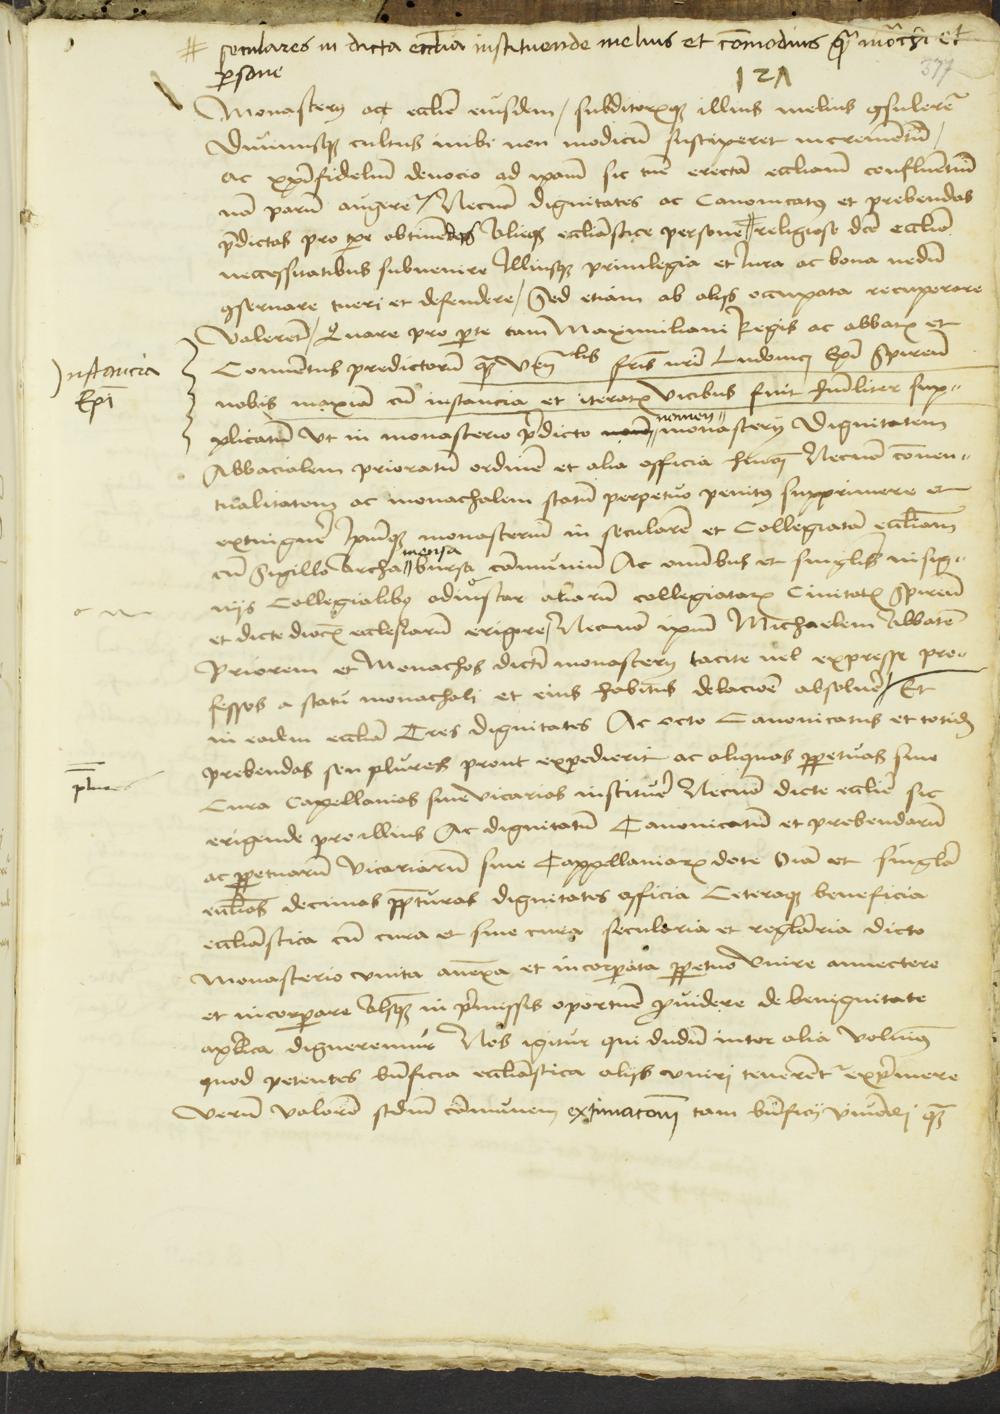 # seculares in dicta ecclia instituende melius et comodius q̄ mōchi et
psone
121
377
Monasterij ac ecclie eiusdem / subditorumq illius melius ꝯsulere
Diuinusq cultus inibi non modicū susciperet incrementū /
ac xpifidelium deuocio ad ipam sic tūc erectā eccliam confluentiū
nō parū augere / Necnō dignitates ac Canonicatus et prebendas
p̄dictas pro tpe obtinētes alieq eccliastice persone # religiose dce ecclie
neccessitatibus subuenire Illiusq priuilegia et Iura ac bona nedū
ꝯseruare tueri et defendere / Sed etiam ab alijs occupata recuperare
Valerent / Quare pro pte tam Maximiliani Regis ac abbatis et
Conuentus predictorū q̄ Ven lis fris nri Ludouici Epi Spiren
Instancia
Epi
nobis maxia cū instancia et iteratis vicibus fuit humiliter sup-
plicatū Vt in monasterio p̄dicto nomen monasterij Dignitatem
Abbacialem prioratū ordinē et alia officia Necnō conuen-
tualitatem ac monachalem statū perpetuo penitus supprimere et
extinguere Ipumq monasteriū in secularē et Collegiatā eccliam
cū Sigillo archa mensa bursa cōmuniū Ac omibus et singlis insig-
nijs Collegialibus ad instar aliarū collegiatarū Ciuitatis Spiren
et dicte dioc ecclesiarū erigere Necnō ipm Michaelem Abbatē
Priorem et Monachos dicti monasterij tacite uel expresse pro-
fessos a statu monachali et eius habitus delacioē absoluere / Et
in eadem ecclia Tres dignitates Ac octo Canonicatus et totidem
prebendas seu plures prout expedierit ac aliquas ppetuas sine
plures
Cura Capellanias siue vicarias instituere Necnō dicte ecclie sic
erigende pro illius Ac dignitatū Canonicatū et prebendarū
ac ppetuarū Vicariarū siue Cappellaniarū dote Oīa et singla
ecclias decimas dignitates officia Ceteraq beneficia
eccliastica cū cura et sine cura secularia et regularia dicto
Monasterio vnita anexa et incorpata ppetuo Vnire annectere
et incorpare Aliasq in p̄missis oportune ꝓuidere de benignitate
aplica digneremur Nos igitur qui dudū inter alia voluimus
quod petentes bnficia eccliastica alijs vniri tenerent exp̄mere
verū valorē scdm cōmunem extimatom tam bnficij vniendi q̄